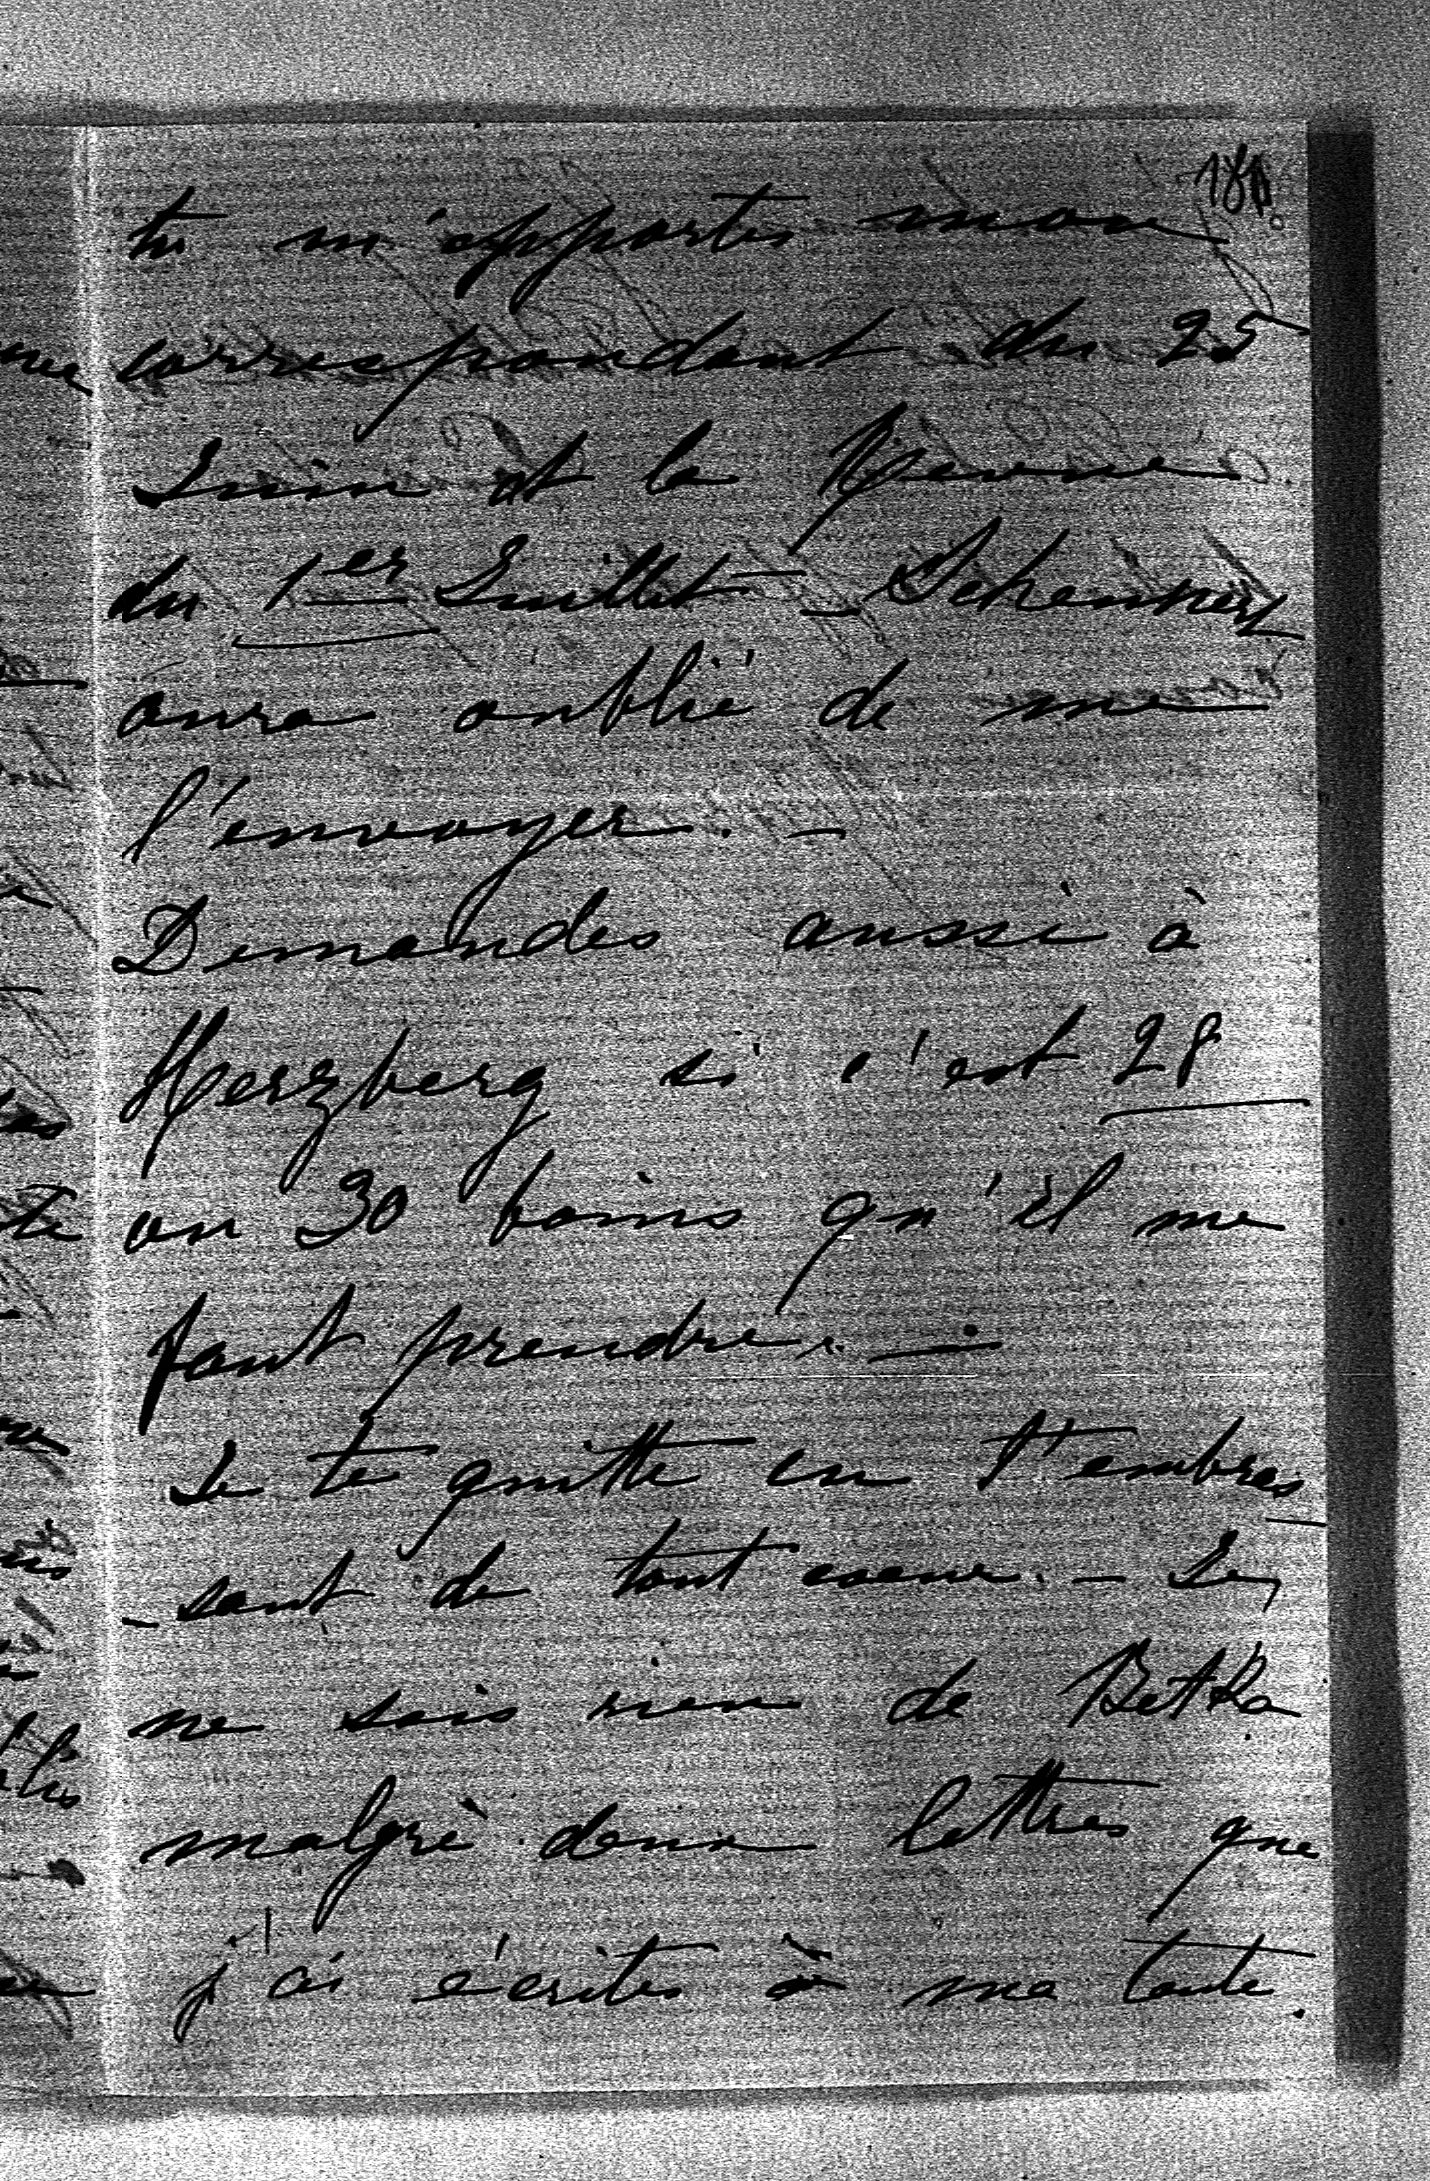 tu m'apportes mon
correspondant du 25
Juin et la Revue
du 1er Juillet – Schennert
aura oublié de me
l'envoyer. –
Demandes aussi à
Herzberg si c'est 28
ou 30 bains qu'il me
faut prendre. –
Je te quitte en t'embras
-sant de tout coeur. – Je
ne sais rien de Betka
malgrè deux lettres que
j'ai écrites à ma tante.